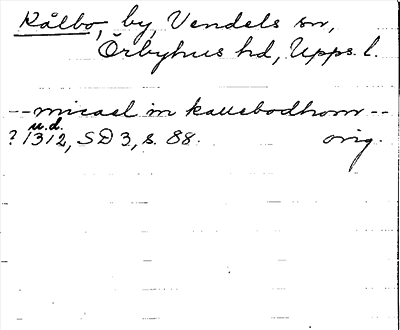 Kålbo, by, Vendels sn,
Örbyhus hd, Upps. l.
-- micael in kallebodhom --
u.d.
? 1312, SD 3, s. 88. orig.